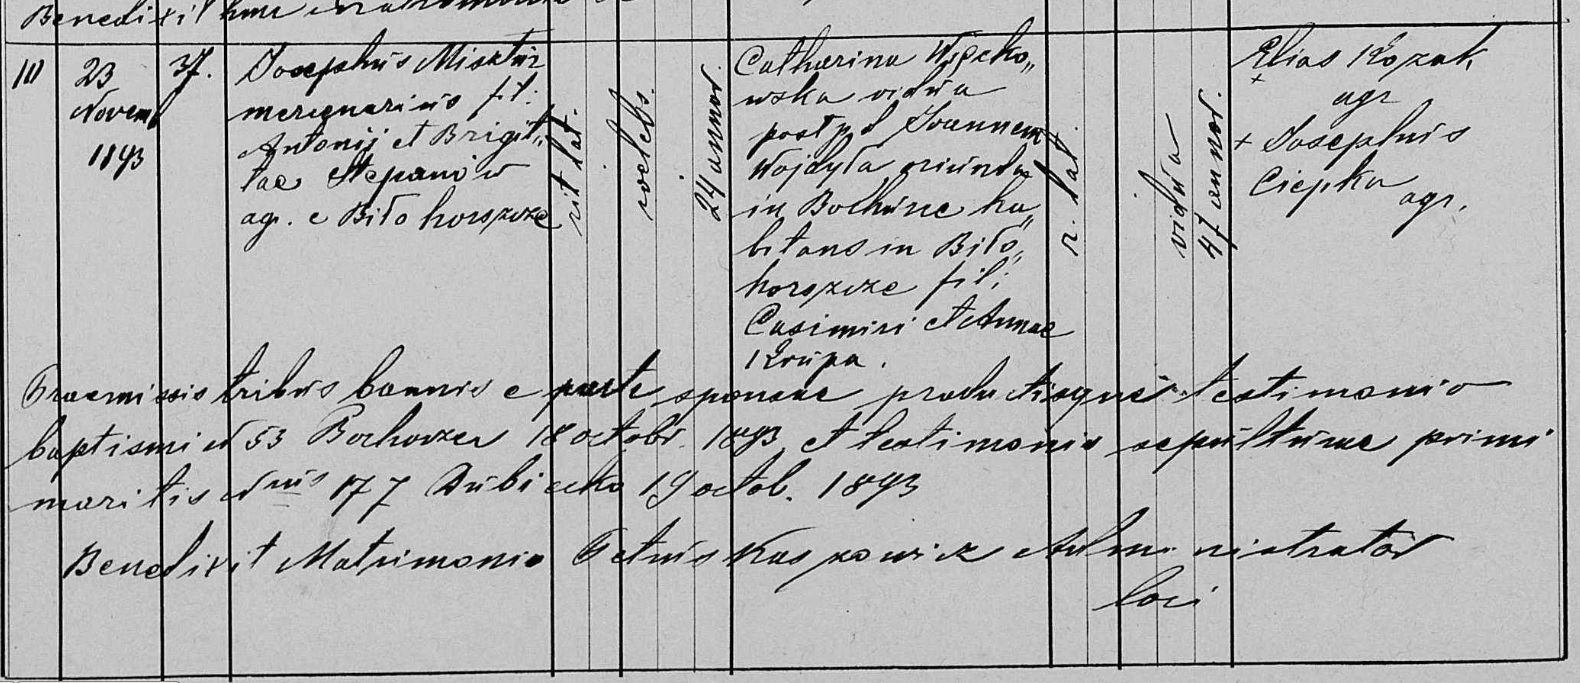 Benedixit
10
23 Novem 1893
37.
Josephus Misztur
mercenarius fil:
Antonij et Brigit„
tae Stepaniw
agr. e Biłohorszcze
rit. lat.
coelebs.
24 annor.
Catharina Więcko„
wska vidua
post Joannem
Wojdyła oriunda
in Bochwrze ha„
bitans in Biło„
horszcze fil:
Casimiri et Annae
Krupa.
r. lat
vidua
47 annor.
Elias Kozak
agr
+ Josephus
Ciepka agr.
Praemissis tribus bannis e parte sponsae productisque testimonio
baptismi N 53 18 octobr. 1893 et testimonio sepulturae primi
maritis Nrus 177 Dubiecko 19 octob. 1893
Benedixit Matrimonio Petrus Kasparowicz Administrator
loci